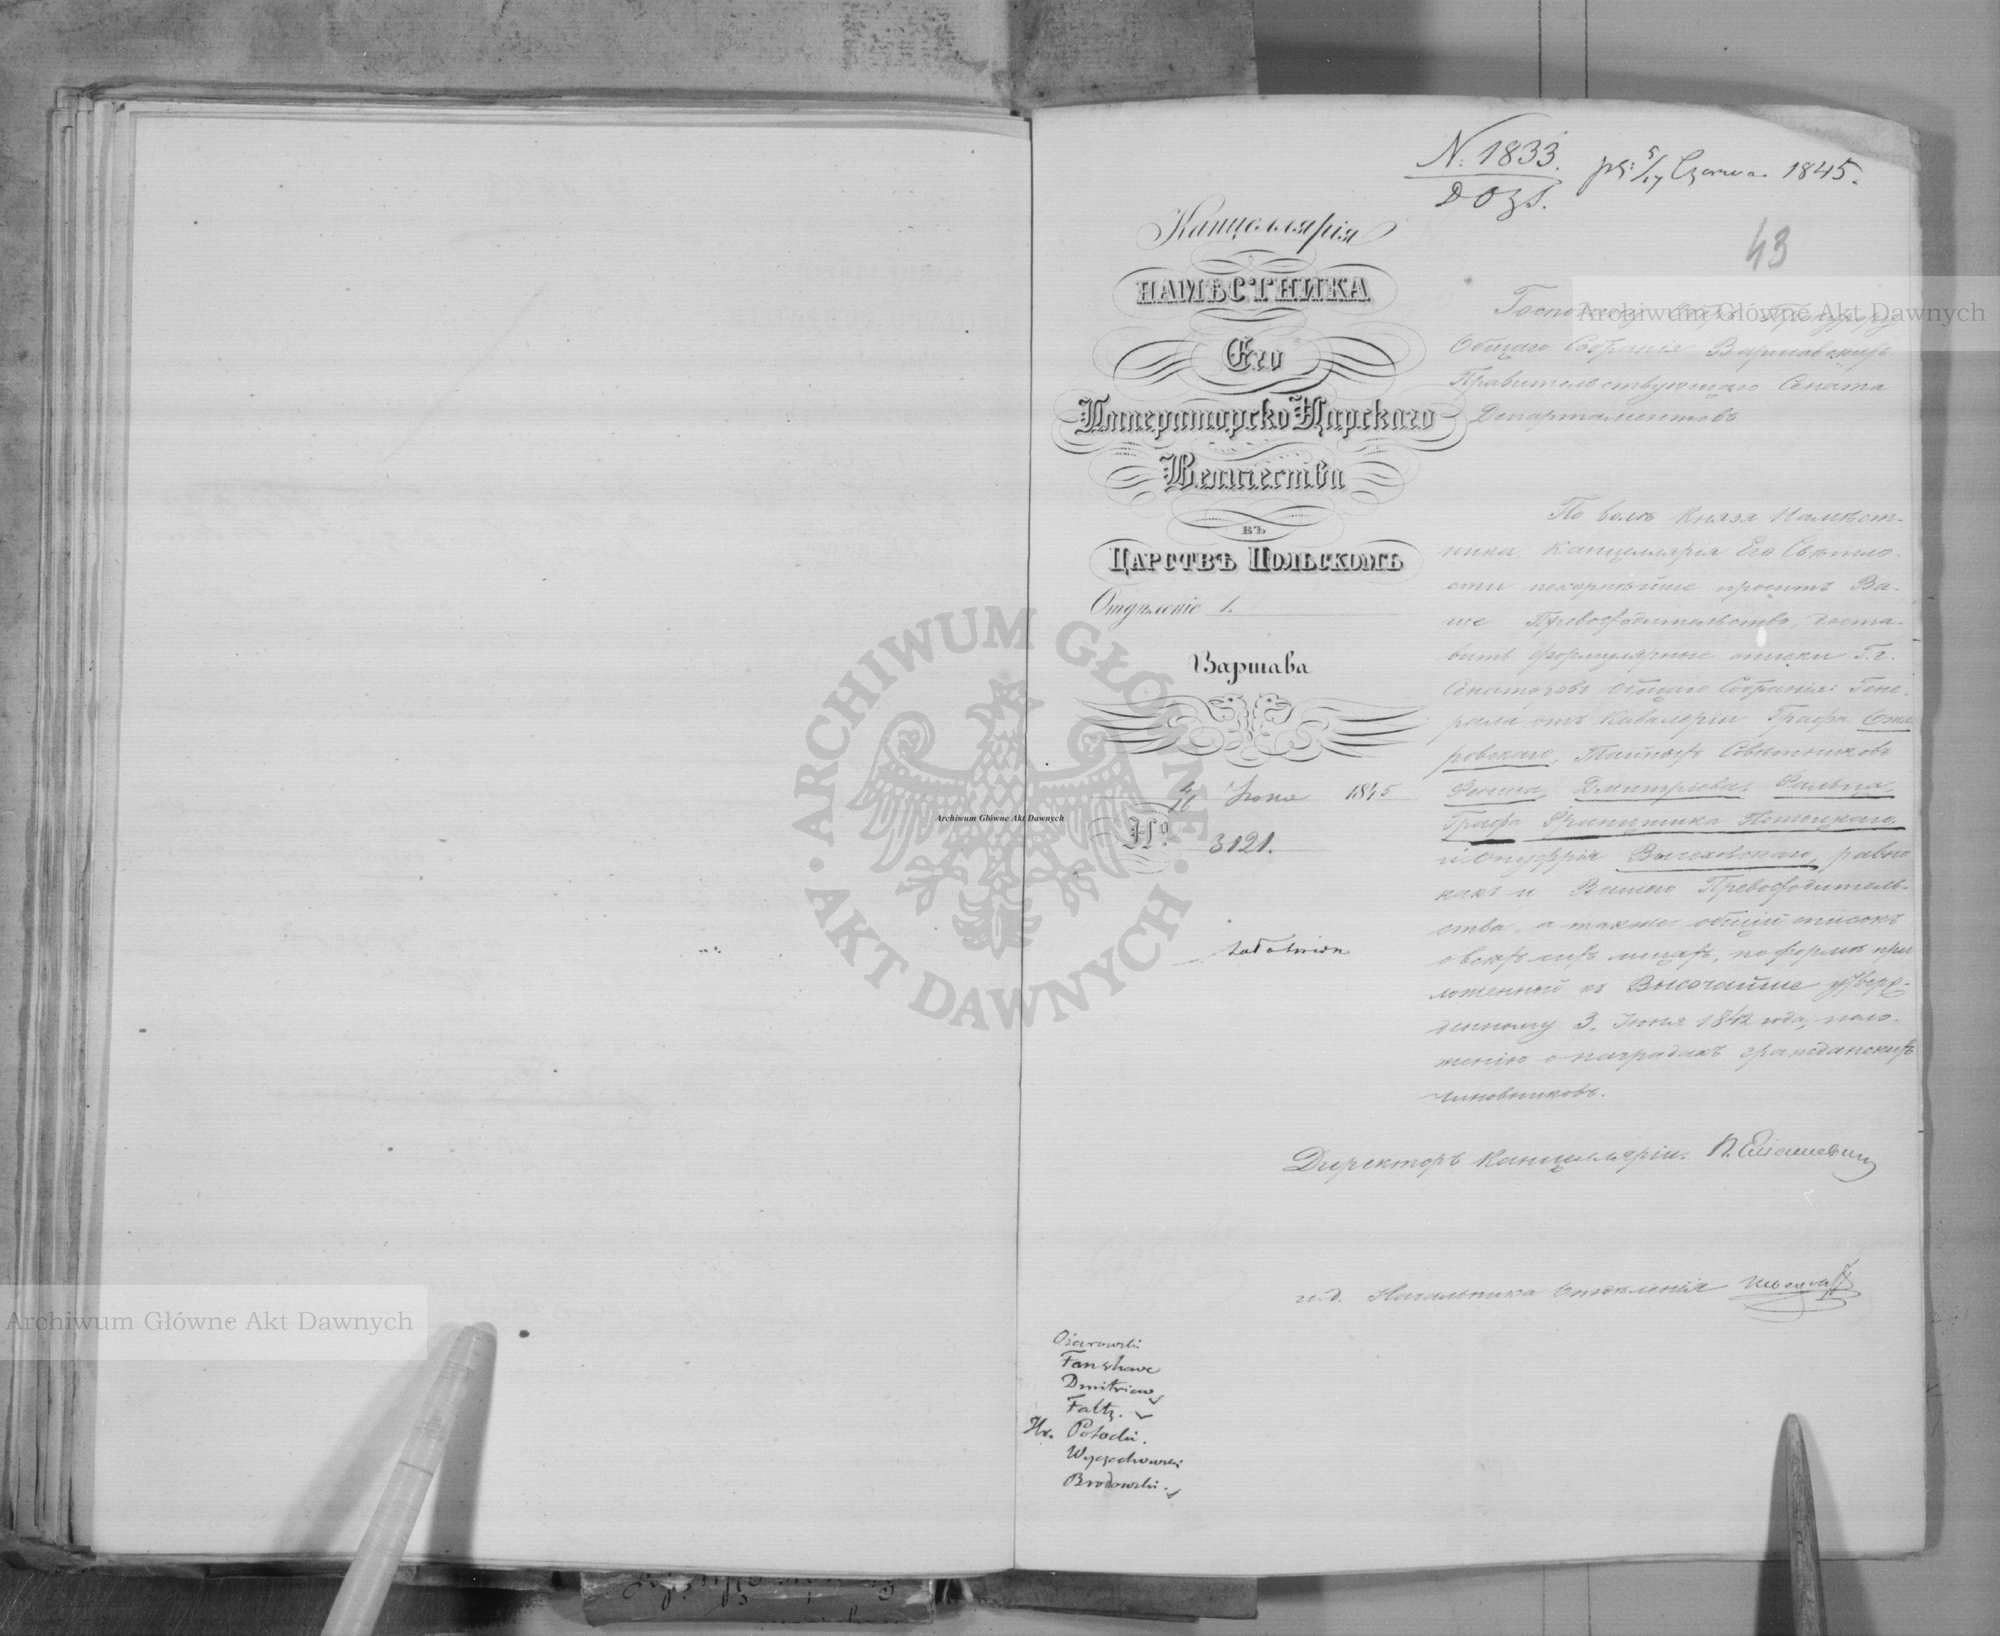 N. 1833.
D O z S.
5/17 Czerwca 1845.
43
Канцеллярія
НАМѢСТНИКА
Его
Императорско Царскаго
Величества
въ
Царствѣ Польскомъ
Отдѣленіе 1.
Варшава
4/16 Іюня 1845
№ 3121.
Господину Оберъ Прокурору
Общаго Собранія Варшавскихъ
Правительствующаго Сената
Департаментовъ
По волѣ Князя Намѣст-
ника, Канцеллярія Его Свѣтло-
сти покорнѣйше проситъ Ва-
ше Превосходительство, доста-
вить формулярные списки Г.г.
Сенаторовъ Общаго Собранія: Гене-
рала отъ Кавалеріи Графа Ожа
ровскаго, Тайныхъ Совѣтниковъ
Фенша, Дмитріева, Фальца,
Графа Францишка Потоцкаго,
и Онуфрія Вычеховскаго, равно
какъ и Вашего Превосходитель-
ства, а также общій списокъ
о всѣхъ сихъ лицахъ, по формѣ при
ложенной къ Высочайше утверж-
денному 3. Іюня 1842 года, поло-
женію о наградахъ гражданскихъ
чиновниковъ.
Директоръ Канцелляріи.
и.д. Начальника Отдѣленія
Ożarowski
Fanshave
Dmitriew
Faltz.
Hr. Potocki.
Wyczechowski
Brodowski.
Archiwum Główne Akt Dawnych
Archiwum Główne Akt Dawnych
Archiwum Główne Akt Dawnych
ARCHIWUM GŁÓWNE AKT DAWNYCH